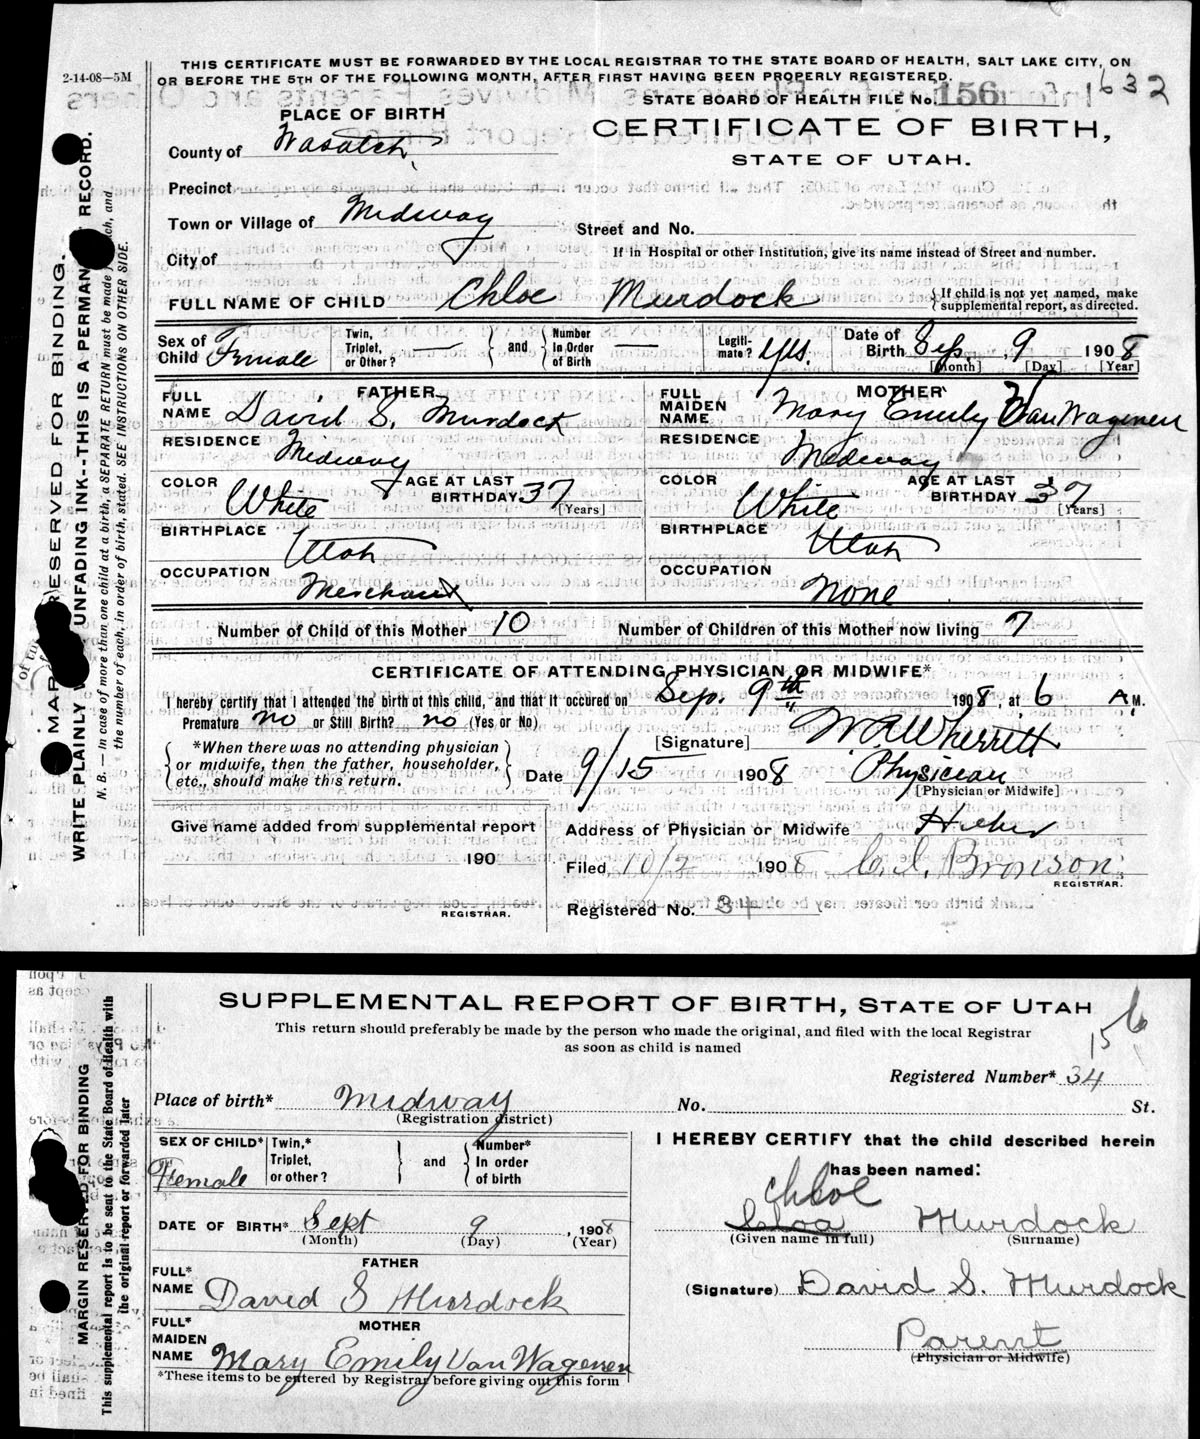 2-14-08—5M
THIS CERTIFICATE MUST BE FORWARDED BY THE LOCAL REGISTRAR TO THE STATE BOARD OF HEALTH, SALT LAKE CITY, ON
OR BEFORE THE 5TH OF THE FOLLOWING MONTH, AFTER FIRST HAVING BEEN PROPERLY REGISTERED.
632
STATE BOARD OF HEALTH FILE No. 156
PLACE OF BIRTH
CERTIFICATE OF BIRTH,
County of Wasatch
STATE OF UTAH.
Precinct
Town or Village of Midway Street and No.
City of If in Hospital or other Institution, give its name instead of Street and number.
FULL NAME OF CHILD Chloe Murdock {If child is not yet named, make supplemental report, as directed.
Sex of Child Female Twin, Triplet, or Other? — } and { Number In Order of Birth — Legitimate? yes. Date of Birth Sep. 9 1908
[Month] [Day] [Year]
FATHER MOTHER
FULL NAME David S. Murdock FULL MAIDEN NAME Mary Emily Van Wagenen
RESIDENCE Midway RESIDENCE Midway
COLOR White AGE AT LAST BIRTHDAY 37 [Years] COLOR White AGE AT LAST BIRTHDAY 37 [Years]
BIRTHPLACE Utah BIRTHPLACE Utah
OCCUPATION Merchant OCCUPATION None
Number of Child of this Mother 10 Number of Children of this Mother now living 7
CERTIFICATE OF ATTENDING PHYSICIAN OR MIDWIFE*
I hereby certify that I attended the birth of this child, and that it occured on Sep. 9th 1908, at 6 A M.
Premature no or Still Birth? no (Yes or No)
{*When there was no attending physician or midwife, then the father, householder, etc., should make this return.}
[Signature] W.R. Wherritt
Date 9/15 1908 Physician
[Physician or Midwife]
Give name added from supplemental report
Address of Physician or Midwife Heber
190
Filed 10/2 1908 C. I. Bronson
REGISTRAR.
REGISTRAR.
Registered No. 34
MARGIN RESERVED FOR BINDING.
WRITE PLAINLY UNFADING INK--THIS IS A PERMAN RECORD.
N. B.—In case of more than one child at a birth, a SEPARATE RETURN must be made ch, and
the number of each, in order of birth, stated. SEE INSTRUCTIONS ON OTHER SIDE.
SUPPLEMENTAL REPORT OF BIRTH, STATE OF UTAH
This return should preferably be made by the person who made the original, and filed with the local Registrar
as soon as child is named
156
Registered Number* 34
Place of birth* Midway No. St.
(Registration district)
SEX OF CHILD* Female Twin,* Triplet, or other? } and { Number* In order of birth
I HEREBY CERTIFY that the child described herein
has been named:
Chloe
DATE OF BIRTH* Sept 9, 1908
(Month) (Day) (Year)
Cloa Murdock
(Given name in full) (Surname)
FATHER
FULL* NAME David S Murdock
(Signature) David S. Murdock
MOTHER
FULL* MAIDEN NAME Mary Emily Van Wagenen
Parent
(Physician or Midwife)
*These items to be entered by Registrar before giving out this form
MARGIN RESERVED FOR BINDING
This supplemental report is to be sent to the State Board of Health with
the original report or forwarded later